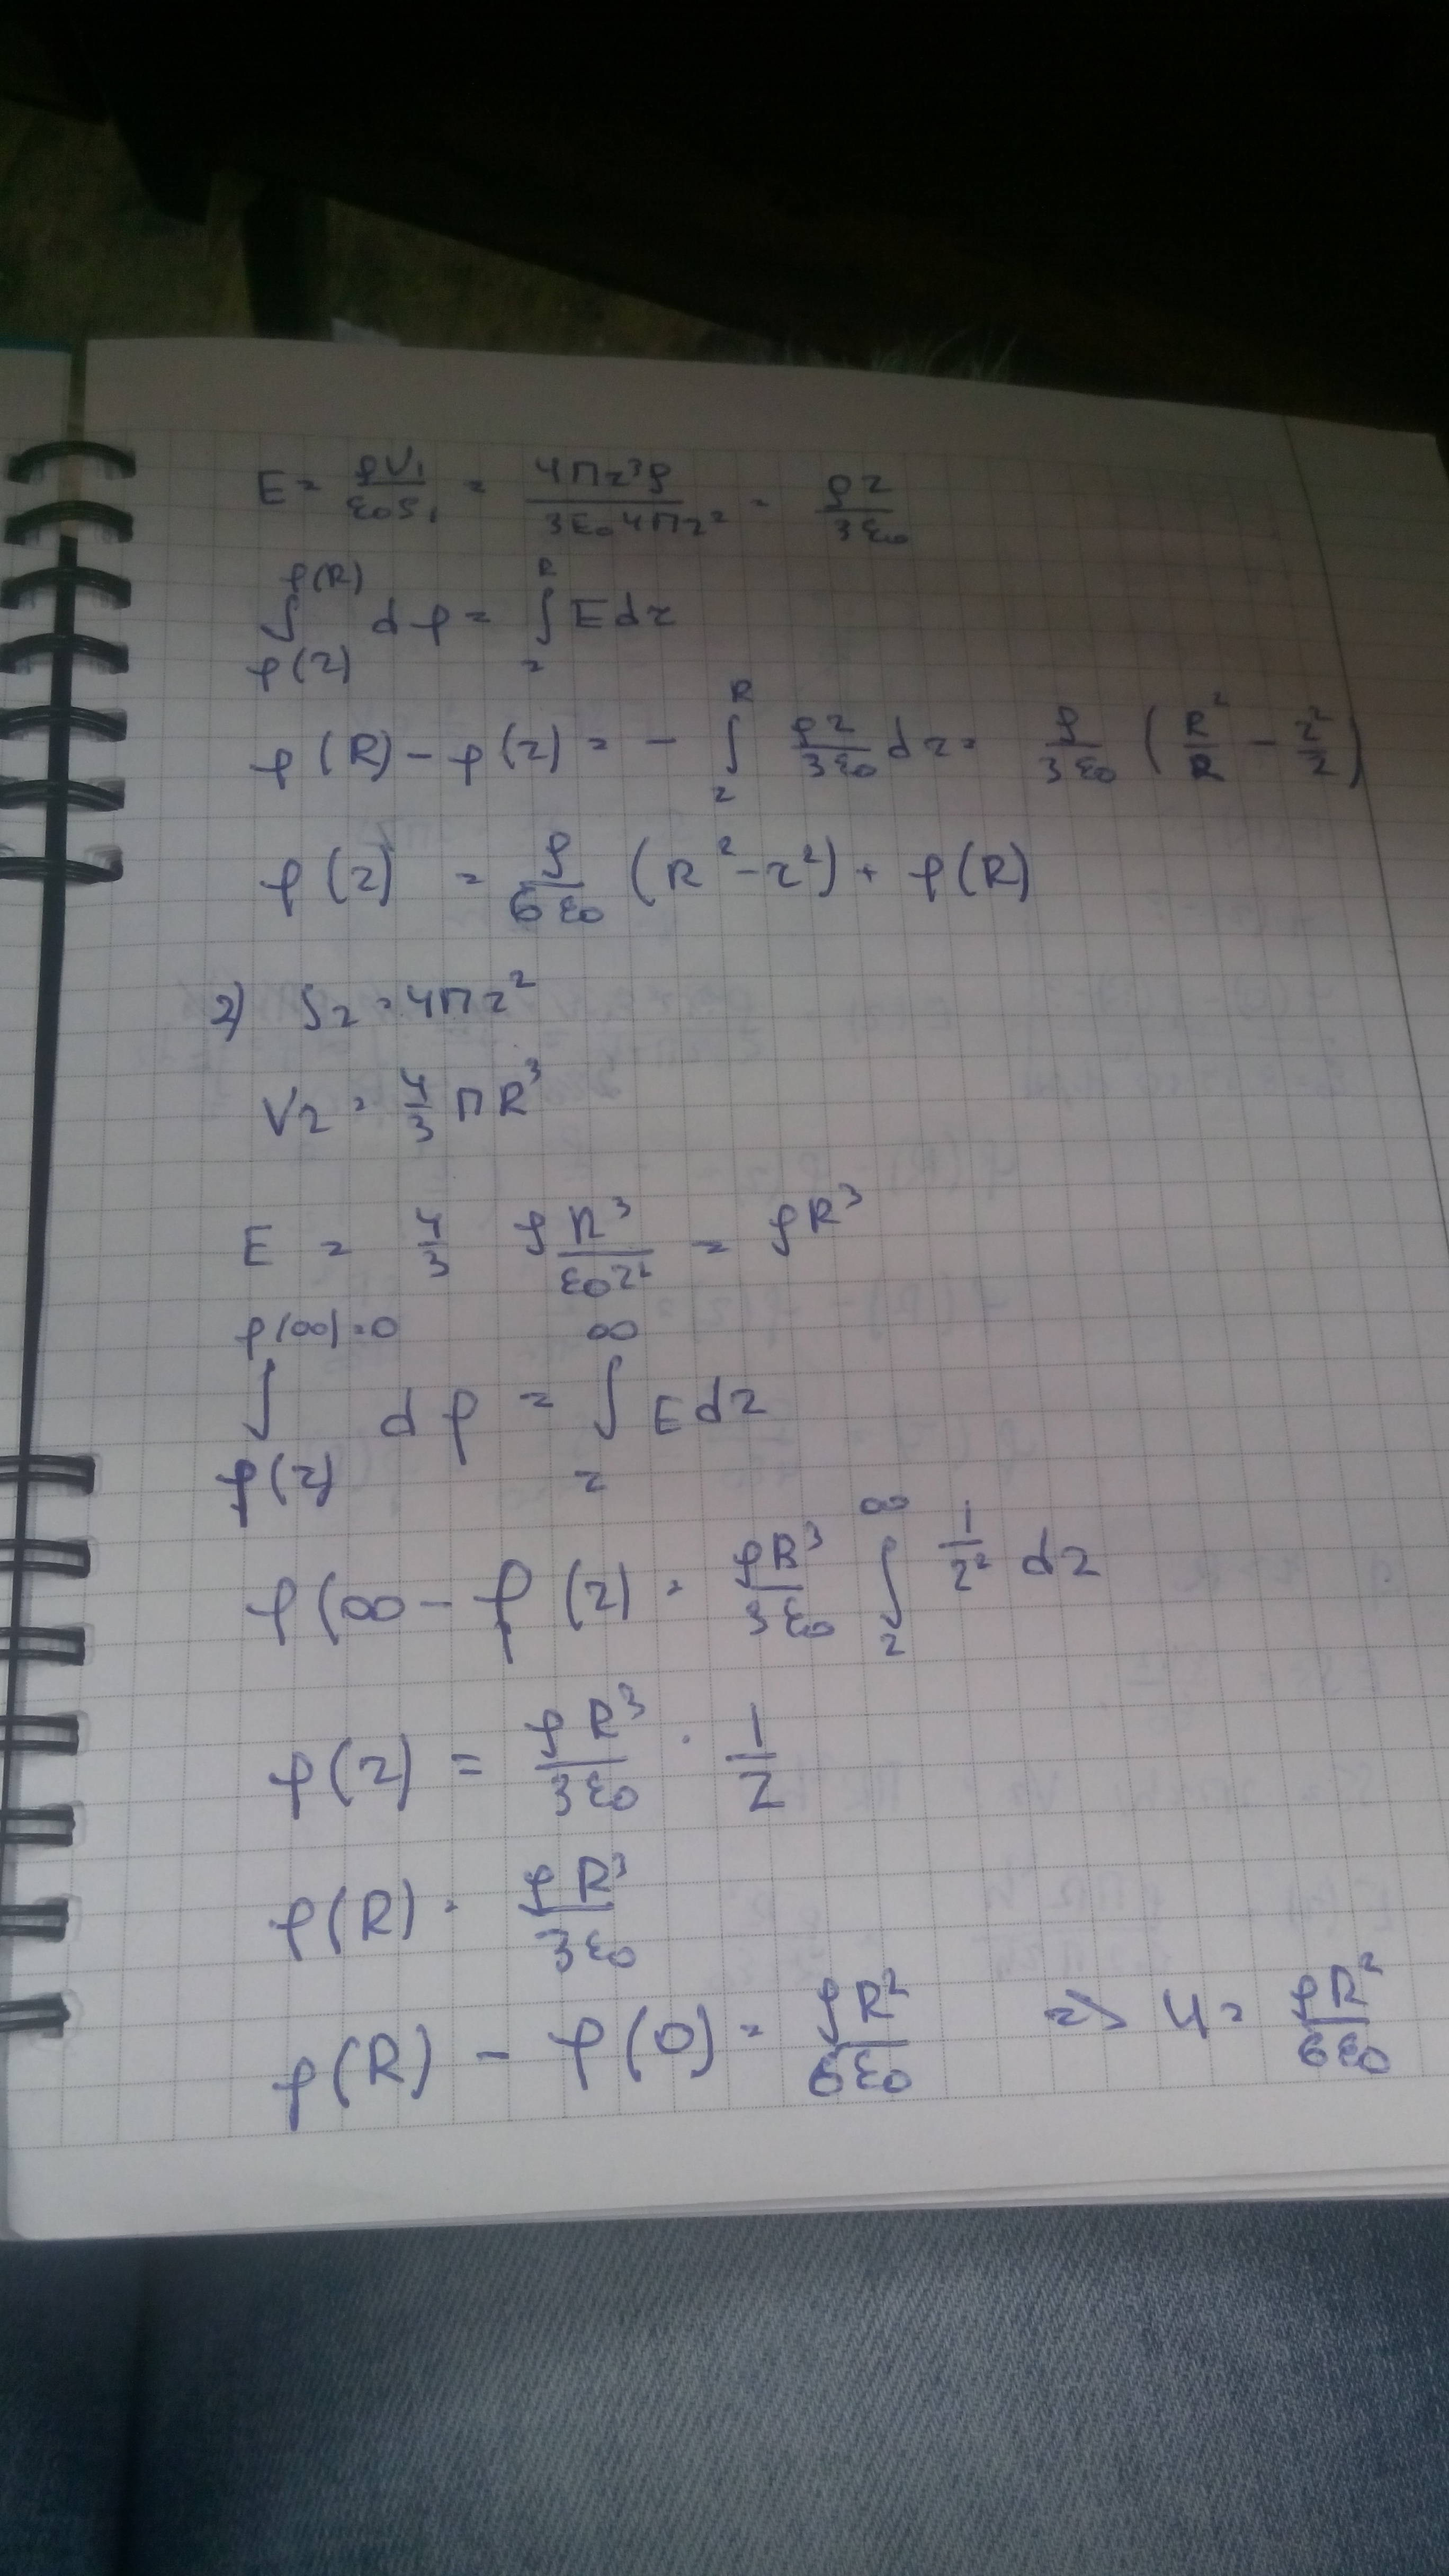 E = ρV₁/ε₀S₁ = 4Пr³ρ/3ε₀4Пr² = ρr/3ε₀
∫_{φ(r)}^{φ(R)} dφ = ∫_r^R E dr
φ(R) - φ(r) = - ∫_r^R ρr/3ε₀ dr = ρ/3ε₀ (R²/2 - r²/2)
φ(r) = ρ/6ε₀ (R² - r²) + φ(R)
2) S₂ = 4Пr²
V₂ = 4/3 ПR³
E = 4/3 ρR³/ε₀r² = ρR³
∫_{φ(r)}^{φ(∞)=0} dφ = ∫_r^∞ E dr
φ(∞ - φ(r) = ρR³/3ε₀ ∫_r^∞ 1/r² dr
φ(r) = ρR³/3ε₀ · 1/r
φ(R) = ρR³/3ε₀
φ(R) - φ(0) = ρR²/6ε₀ => U = ρR²/6ε₀